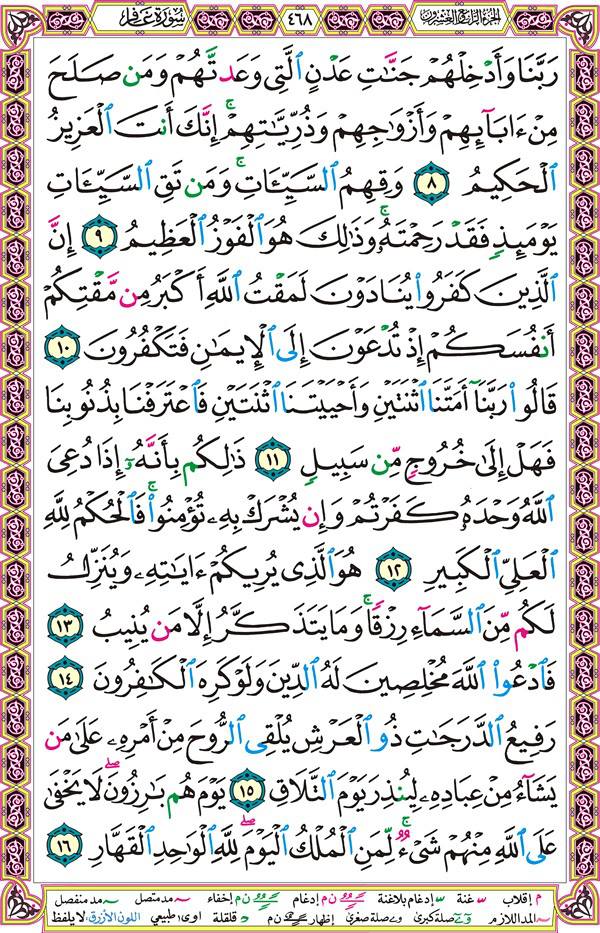 سورة غافر ٤٦٨ الجزء الرابع والعشرون
رَبَّنَا وَأَدْخِلْهُمْ جَنَّٰتِ عَدْنٍ ٱلَّتِى وَعَدتَّهُمْ وَمَن صَلَحَ
مِنْ ءَابَآئِهِمْ وَأَزْوَٰجِهِمْ وَذُرِّيَّٰتِهِمْ ۚ إِنَّكَ أَنتَ ٱلْعَزِيزُ
ٱلْحَكِيمُ ٨ وَقِهِمُ ٱلسَّيِّـَٔاتِ ۚ وَمَن تَقِ ٱلسَّيِّـَٔاتِ
يَوْمَئِذٍ فَقَدْ رَحِمْتَهُۥ ۚ وَذَٰلِكَ هُوَ ٱلْفَوْزُ ٱلْعَظِيمُ ٩ إِنَّ
ٱلَّذِينَ كَفَرُوا۟ يُنَادَوْنَ لَمَقْتُ ٱللَّهِ أَكْبَرُ مِن مَّقْتِكُمْ
أَنفُسَكُمْ إِذْ تُدْعَوْنَ إِلَى ٱلْإِيمَٰنِ فَتَكْفُرُونَ ١٠
قَالُوا۟ رَبَّنَآ أَمَتَّنَا ٱثْنَتَيْنِ وَأَحْيَيْتَنَا ٱثْنَتَيْنِ فَٱعْتَرَفْنَا بِذُنُوبِنَا
فَهَلْ إِلَىٰ خُرُوجٍ مِّن سَبِيلٍ ١١ ذَٰلِكُم بِأَنَّهُۥٓ إِذَا دُعِىَ
ٱللَّهُ وَحْدَهُۥ كَفَرْتُمْ ۖ وَإِن يُشْرَكْ بِهِۦ تُؤْمِنُوا۟ ۚ فَٱلْحُكْمُ لِلَّهِ
ٱلْعَلِىِّ ٱلْكَبِيرِ ١٢ هُوَ ٱلَّذِى يُرِيكُمْ ءَايَٰتِهِۦ وَيُنَزِّلُ
لَكُم مِّنَ ٱلسَّمَآءِ رِزْقًا ۚ وَمَا يَتَذَكَّرُ إِلَّا مَن يُنِيبُ ١٣
فَٱدْعُوا۟ ٱللَّهَ مُخْلِصِينَ لَهُ ٱلدِّينَ وَلَوْ كَرِهَ ٱلْكَٰفِرُونَ ١٤
رَفِيعُ ٱلدَّرَجَٰتِ ذُو ٱلْعَرْشِ يُلْقِى ٱلرُّوحَ مِنْ أَمْرِهِۦ عَلَىٰ مَن
يَشَآءُ مِنْ عِبَادِهِۦ لِيُنذِرَ يَوْمَ ٱلتَّلَاقِ ١٥ يَوْمَ هُم بَٰرِزُونَ ۖ لَا يَخْفَىٰ
عَلَى ٱللَّهِ مِنْهُمْ شَىْءٌ ۚ لِّمَنِ ٱلْمُلْكُ ٱلْيَوْمَ ۖ لِلَّهِ ٱلْوَٰحِدِ ٱلْقَهَّارِ ١٦
م إقلاب غنة إدغام بلاغنة ن م إدغام ن م إخفاء مد متصل مد منفصل
المد اللازم صلة كبرى صلة صغرى إظهار ن م قلقلة اوى؛ طبيعي اللون الأزرق، لا يلفظ